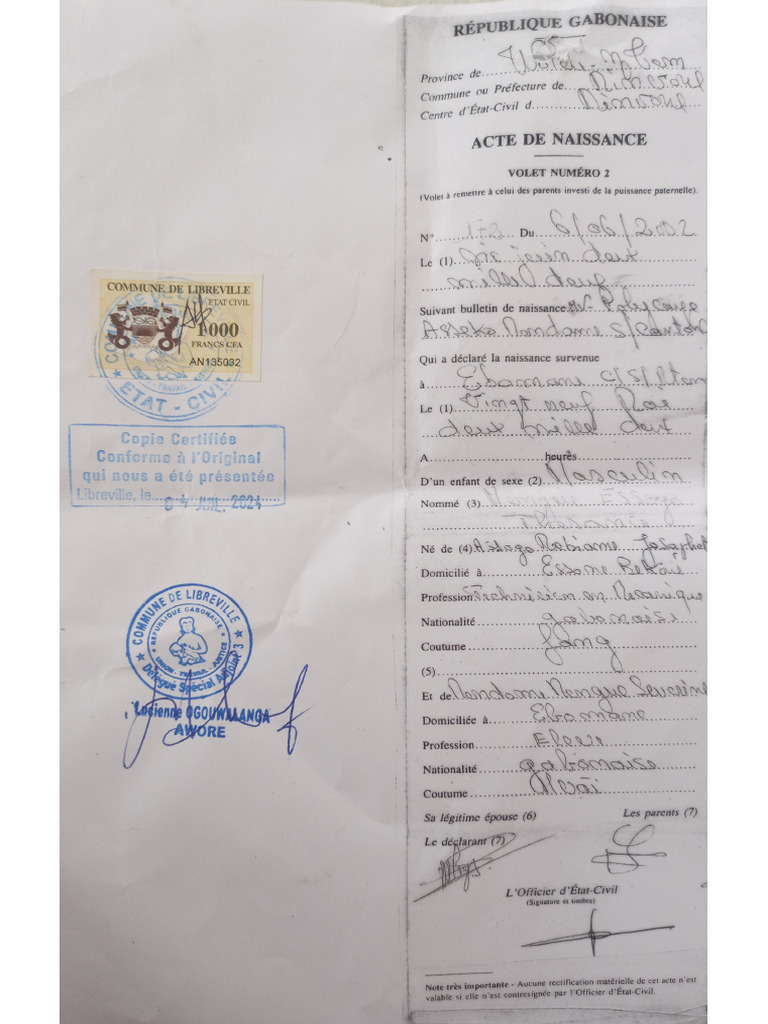 RÉPUBLIQUE GABONAISE
Province de Woleu-Ntem
Commune ou Préfecture de Minvoul
Centre d'État-Civil d Minvoul
ACTE DE NAISSANCE
VOLET NUMÉRO 2
(Volet à remettre à celui des parents investi de la puissance paternelle).
N° 172 Du 6/06/2002
Le (1) Six juin deux
mille deux
Suivant bulletin de naissance
Asseko Mandame
Qui a déclaré la naissance survenue
à Ebomane
Le (1) Vingt neuf Mai
deux mille deux
A heures
D'un enfant de sexe (2) Masculin
Nommé (3) Mengue
Né de (4)
Domicilié à Essone
Profession Technicien en Mecanique
Nationalité gabonaise
Coutume fang
(5)
Et de Mandame Mengue Severine
Domiciliée à Ebomane
Profession Eleve
Nationalité gabonaise
Coutume
Sa légitime épouse (6) Les parents (7)
Le déclarant (7)
L'Officier d'État-Civil
(Signature et timbre)
Note très importante - Aucune rectification matérielle de cet acte n'est
valable si elle n'est contresignée par l'Officier d'État-Civil.
COMMUNE DE LIBREVILLE
ETAT CIVIL
1000
FRANCS CFA
AN135032
ETAT - CIVIL
Copie Certifiée
Conforme à l'Original
qui nous a été présentée
Libreville, le 04 JUIL. 2024
COMMUNE DE LIBREVILLE
REPUBLIQUE GABONAISE
UNION - TRAVAIL - JUSTICE
Délégué Spécial Adjoint 3
Lucienne OGOUWALANGA
AWORE